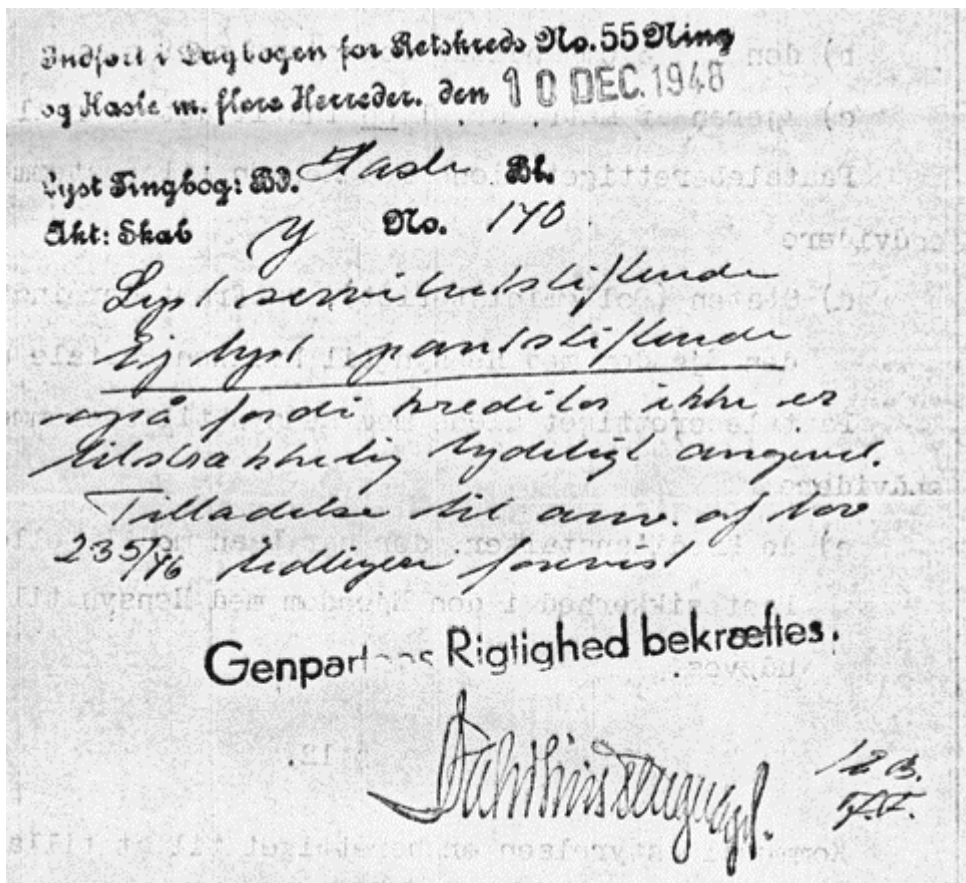 Indført i Dagbogen for Retskreds No. 55 Ning
og Hasle m. flere Herreder. den 10 DEC. 1948
Lyst Tingbog: Bd. Hasle Bl.
Akt: Skab Y No. 170
Lyst servitutstiftende
Ej lyst pantstiftende
også fordi kreditor ikke er
tilstrækkelig tydeligt angivet.
Tilladelse til anv. af lov
235/46 tidligere forevist
Genpartens Rigtighed bekræftes.